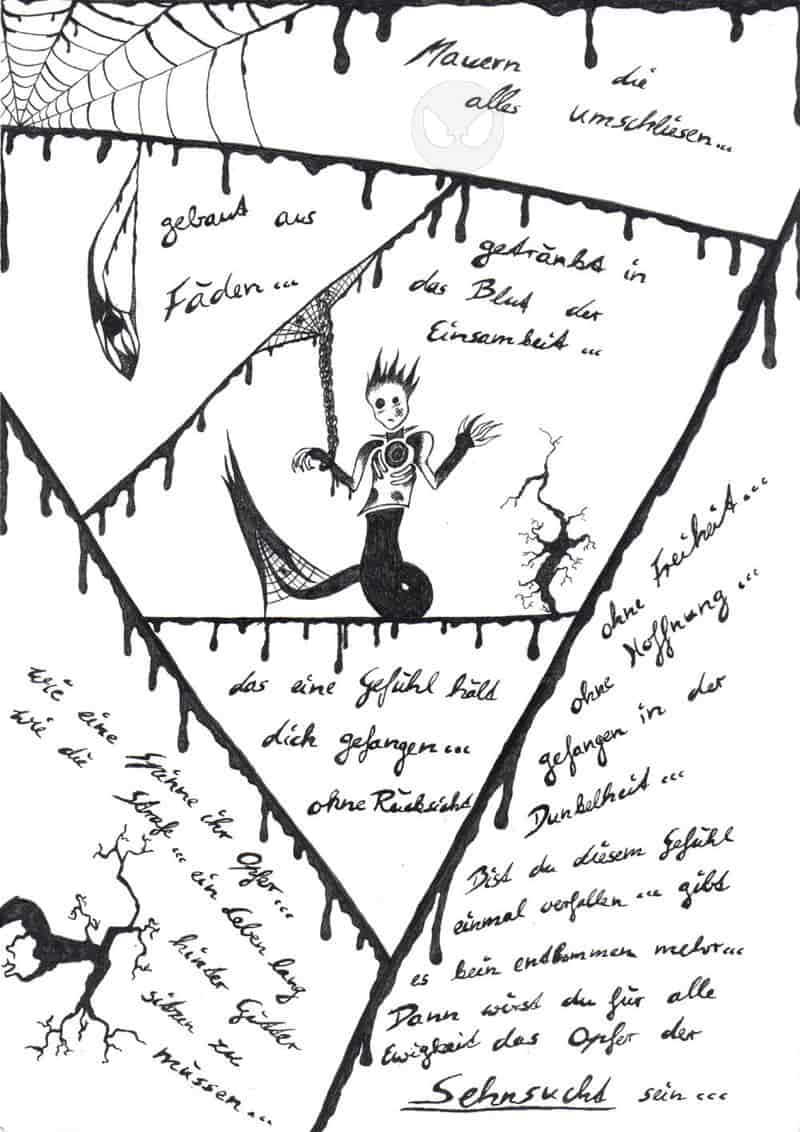 Mauern die
alles umschliesen...
gebaut aus
Fäden...
getränkt in
das Blut der
Einsamkeit...
das eine Gefühl hält
dich gefangen...
ohne Rücksicht
wie eine Spinne ihr Opfer...
wie die Strafe... ein Leben lang
hinder Gitter
sitzen zu
müssen...
ohne Freiheit...
ohne Hoffnung...
gefangen in der
Dunkelheit...
Bist du diesem Gefühl
einmal verfallen... gibt
es kein entkommen mehr...
Dann wirst du für alle
Ewigkeit das Opfer der
Sehnsucht sein...